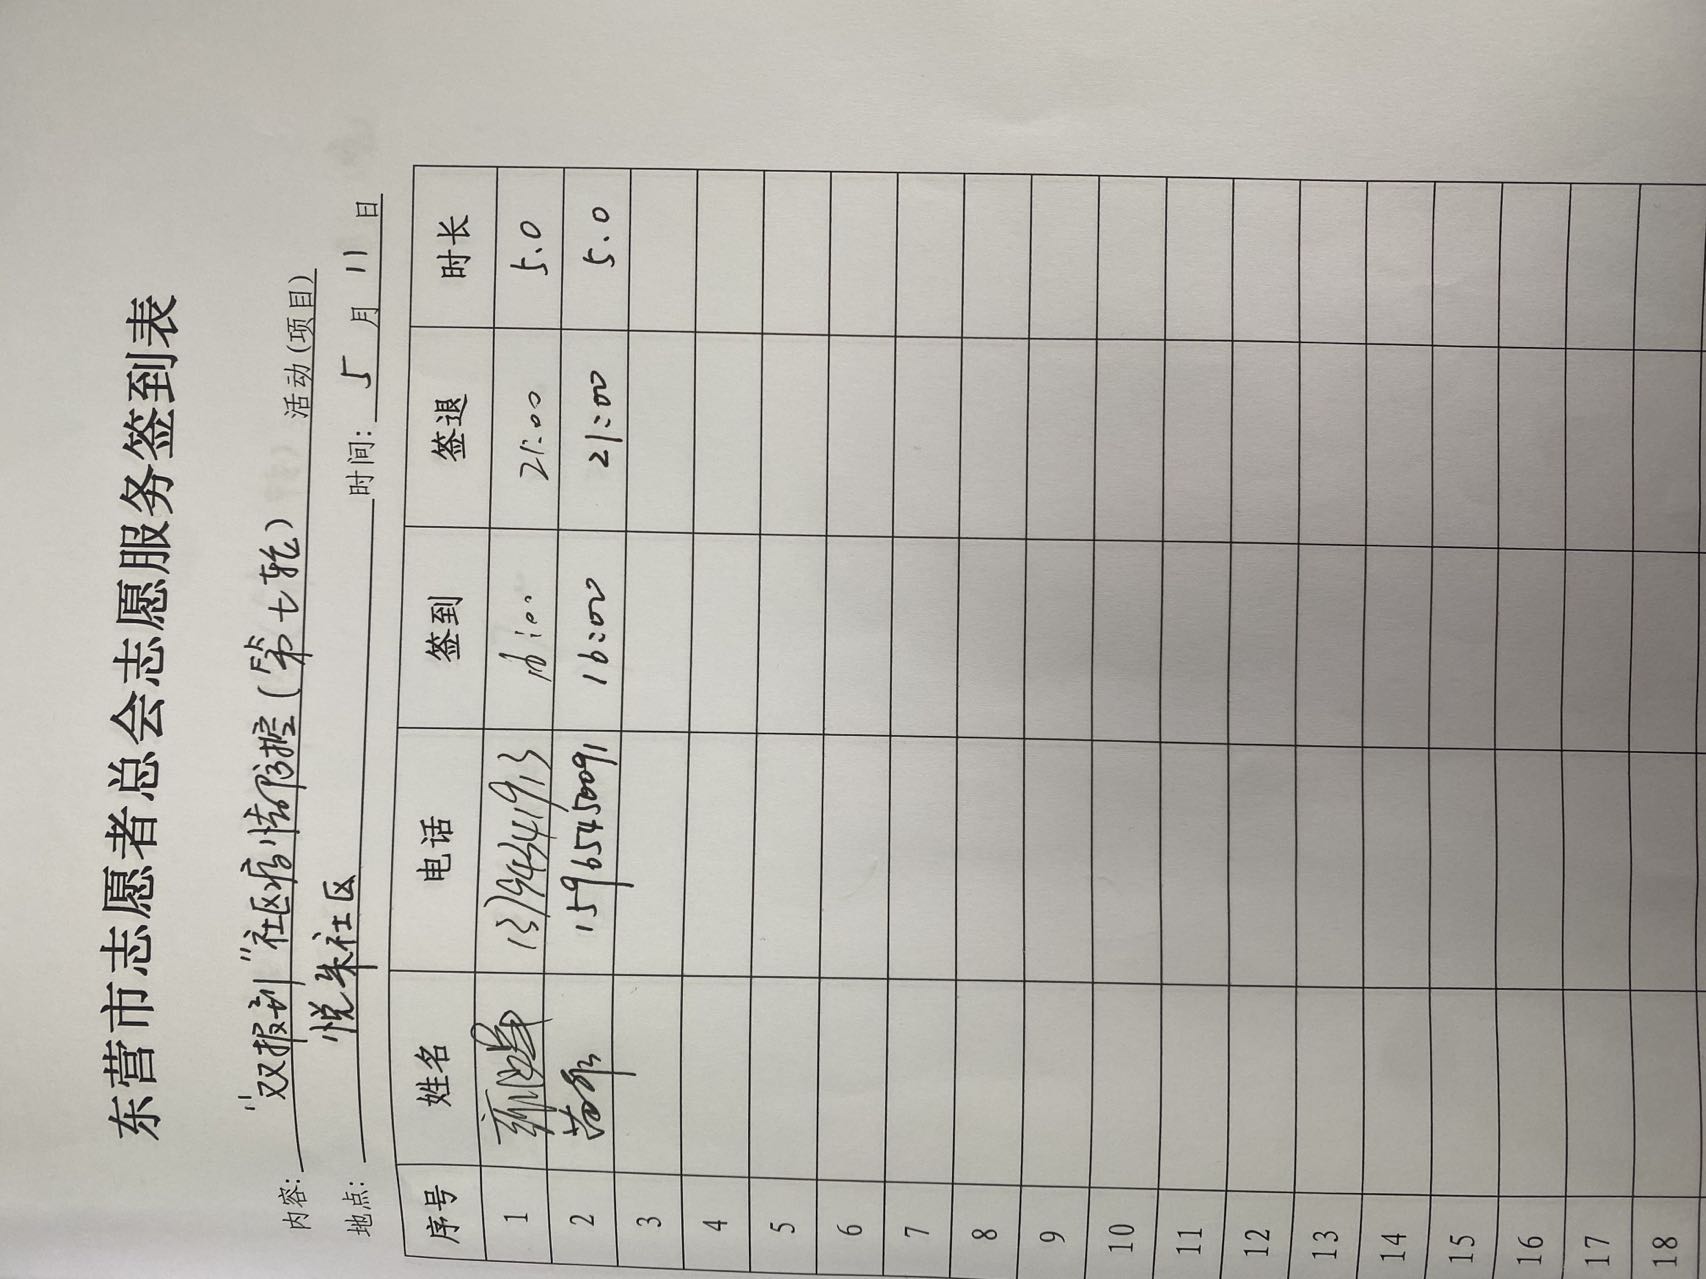 东营市志愿者总会志愿服务签到表
内容: "双报到"社区疫情防控(第七轮) 活动(项目)
地点: 悦来社区 时间: 5 月 11 日
序号 姓名 电话 签到 签退 时长
1 16:00 21:00 5.0
2 15965450091 16:00 21:00 5.0
3
4
5
6
7
8
9
10
11
12
13
14
15
16
17
18